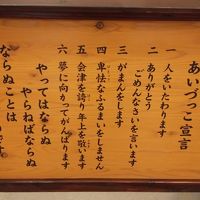 あいづっこ宣言
一 人をいたわります
二 ありがとう
ごめんなさいを言います
三 がまんをします
四 卑怯なふるまいをしません
五 会津を誇り年上を敬います
六 夢に向かってがんばります
やってはならぬ
やらねばならぬ
ならぬことは